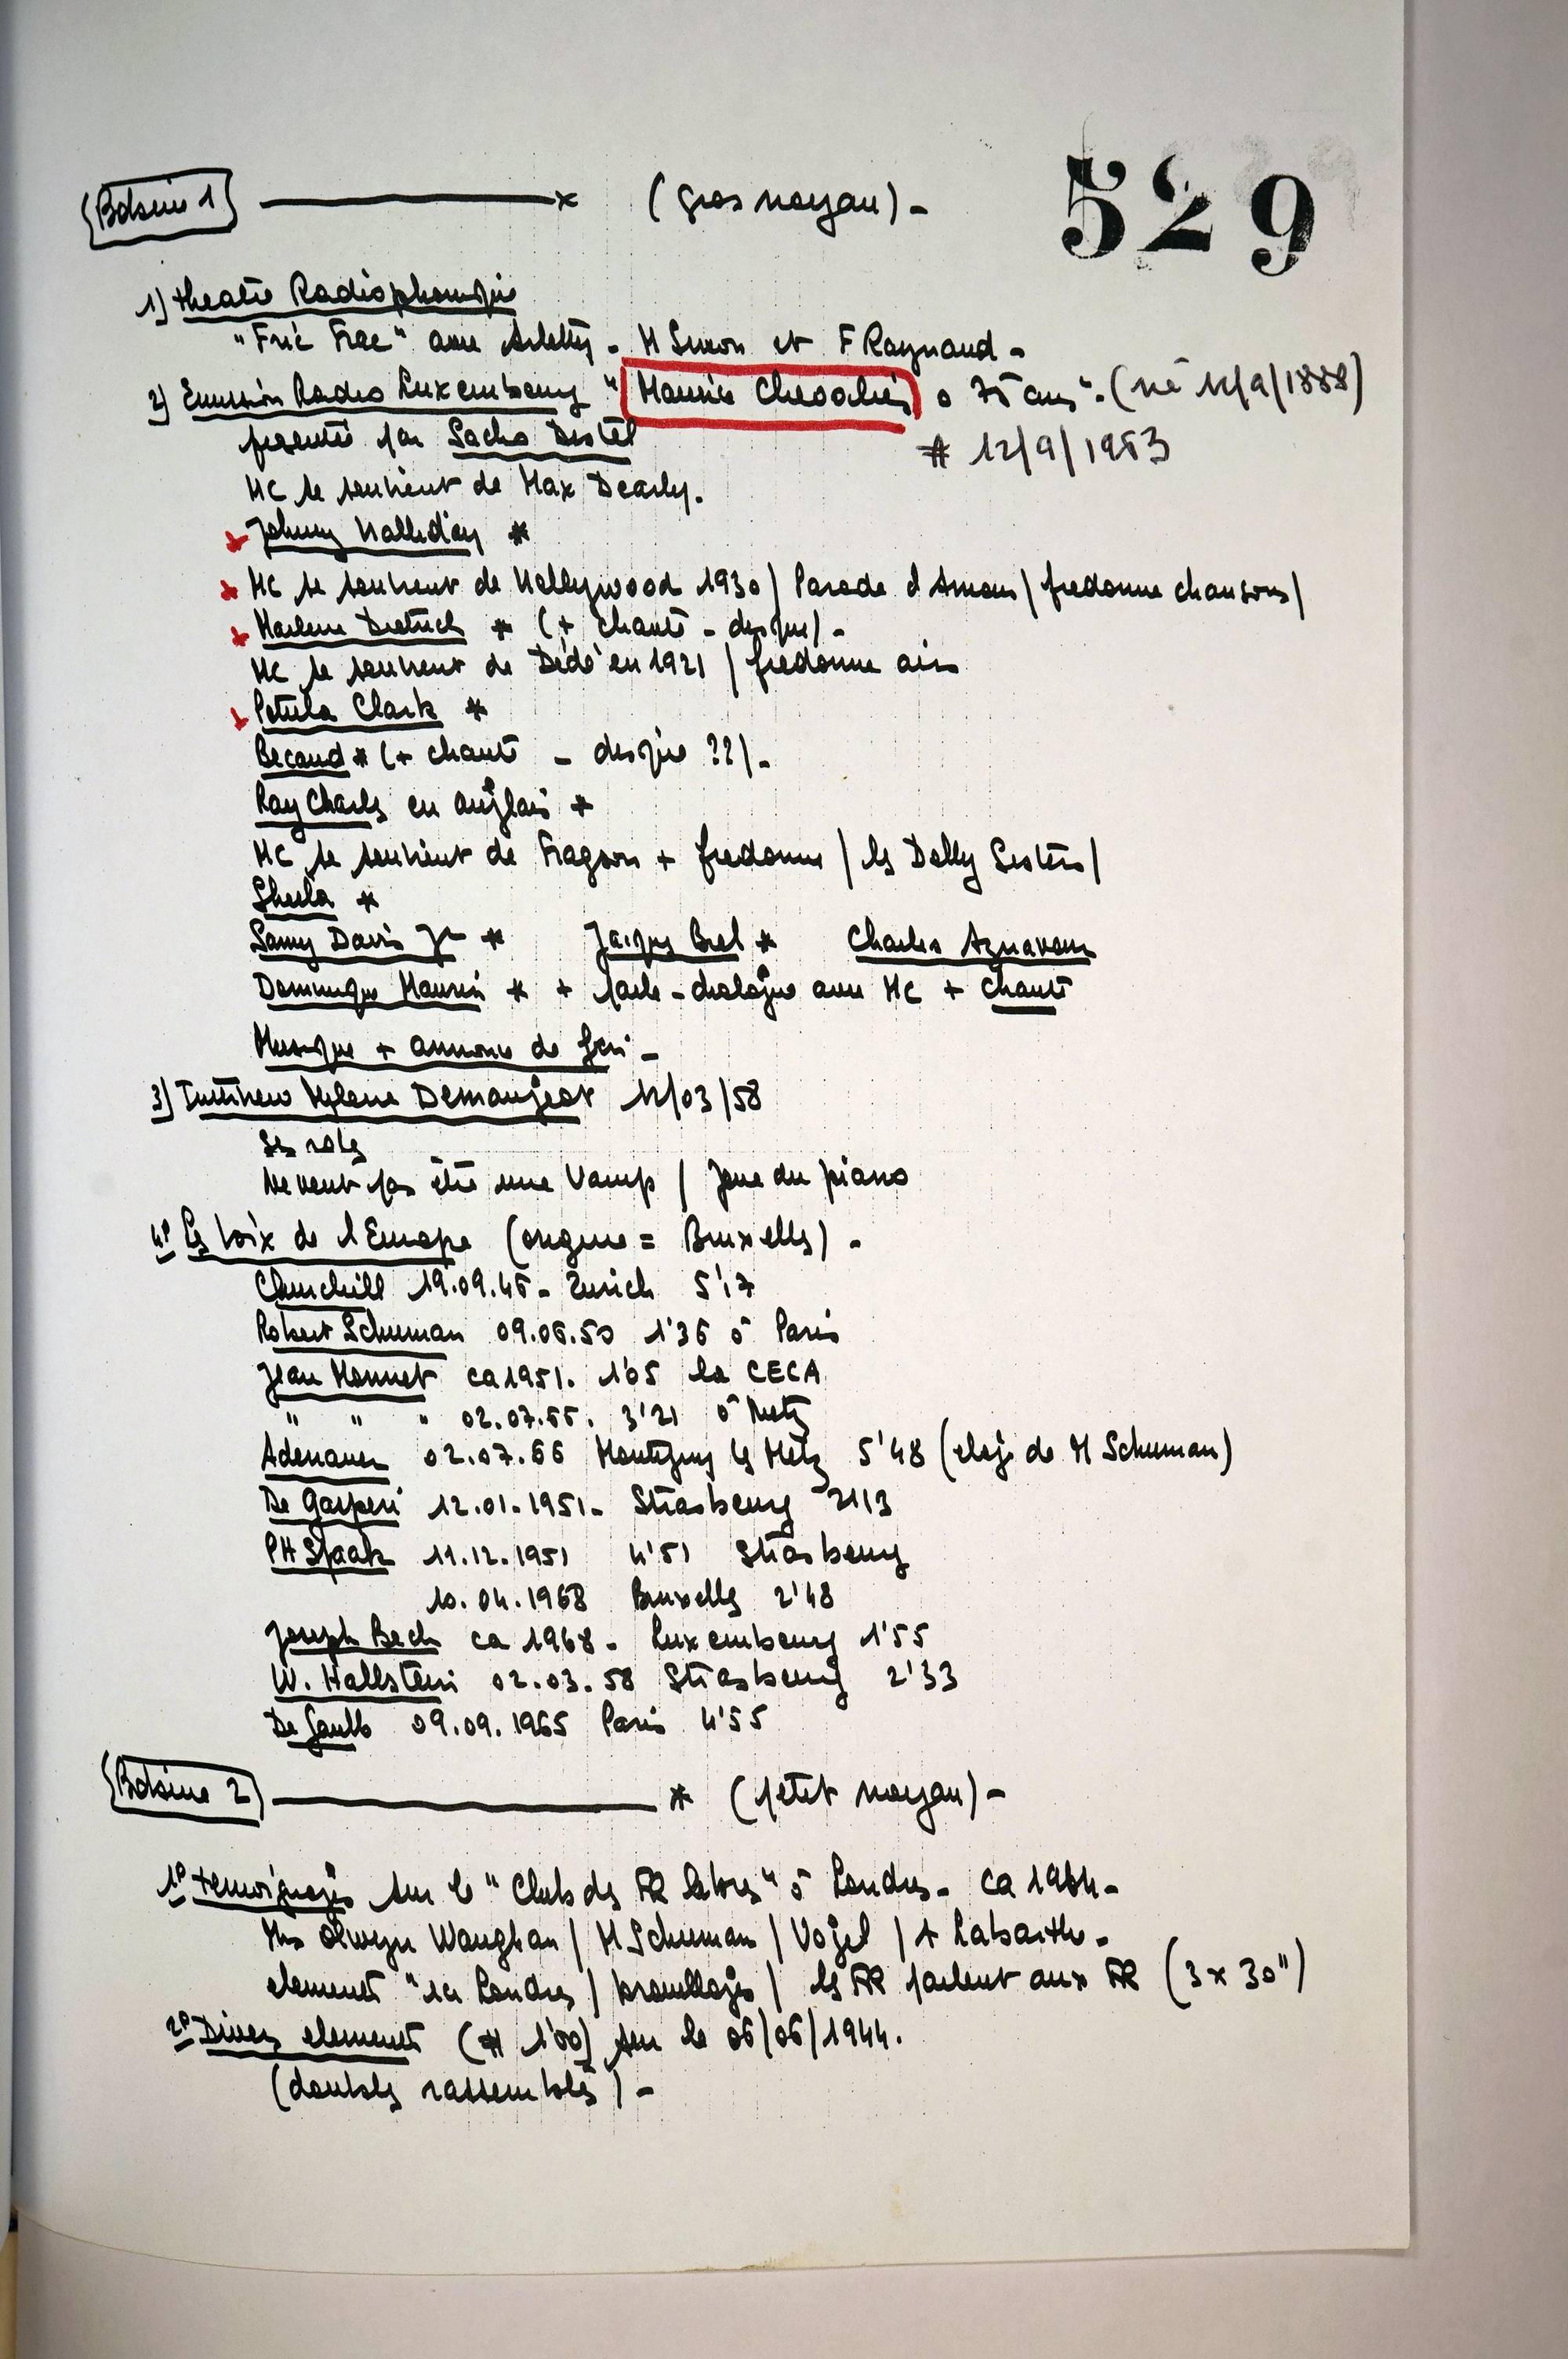 529
Bobine 1 (gros noyau) -
1) theatre Radiophonique
"Fric Frac" avec Arletty - M Simon et F Raynaud -
2) Emission Radio Luxembourg "Maurice Chevalier a 75 ans". (né 12/9/1888)
presentée par Sacha Distel # 12/9/1963
MC se souvient de Max Dearly.
Johnny Halliday *
MC se souvient de Hollywood 1930 / Parade d Amour / fredonne chansons /
Marlene Dietrich * (+ chanté - disque) -
MC se souvient de Dédé en 1921 / fredonne airs
Petula Clark *
Becaud * (+ chanté - disque ??) -
Ray Charles en anglais *
MC se souvient de Fragson + fredonne / les Dolly Sisters /
Sheila *
Samy Davis Jr * Jacques Brel * Charles Aznavour
Dominique Maurin * + parle - dialogue avec MC + chanté
Musique + annonce de fin -
3) Interview Mylene Demongeot 12/03/58
Ses roles
Ne veut pas être une Vamp / Joue du piano
4° Les Voix de l Europe (origine = Bruxelles) -
Churchill 19.09.46 - Zurich 5'17
Robert Schuman 09.05.50 1'36 à Paris
Jean Monnet ca 1951. 1'05 la CECA
" " " 02.07.66. 3'21 à Metz
Adenauer 02.07.66 Montigny les Metz 5'48 (eloge de M Schuman)
De Gasperi 12.01.1951 - Strasbourg 2'13
PH Spaak 11.12.1951 4'51 Strasbourg
10.04.1968 Bruxelles 2'48
Joseph Bech ca 1968 - Luxembourg 1'55
W. Hallstein 02.03.58 Strasbourg 2'33
De Gaulle 09.09.1965 Paris 4'55
Bobine 2 * (petit noyau) -
1° temoignages sur le "Club des FR libres" à Londres - ca 1964 -
Mrs Olwyn Waughan / M Schuman / Vogel / A Labarthe -
elements "ici Londres / brouillages / les FR parlent aux FR (3 x 30")
2° Divers elements (# 1'00) sur le 06/06/1944.
(doubles rassemblés) -